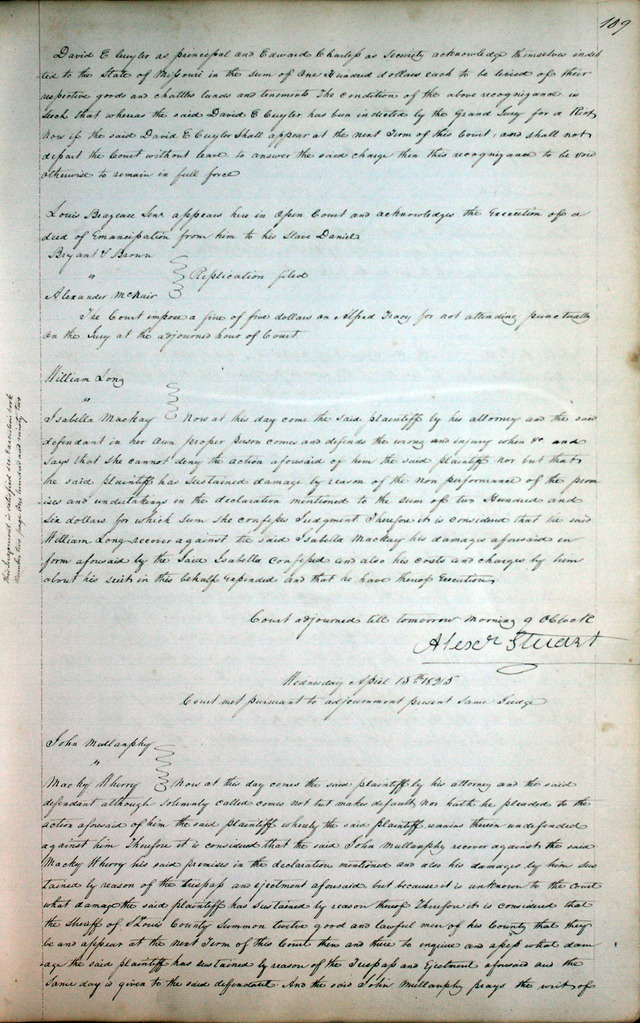 189
David E Cuyler as principal and Edward Charless as Security acknowledge themselves indeb
ted to the State of Missouri in the sum of One Hundred dollars each to be levied of their
respective goods and chattles lands and tenements The condition of the above recognizance is
Such that whereas the said David E Cuyler has been indicted by the Grand Jury for a Riot
Now if the said David E Cuyler Shall appear at the next Term of this Court and shall not
depart the Court without leave to answer the said charge then this recognizance to be void
otherwise to remain in full force
Louis Senr appears here in Open Court and acknowledges the Execution of a
deed of Emancipation from him to his Slave Daniel
Bryant T Brown
" Replication filed
Alexander McNair
The Court impose a fine of five dollars on Alfred Tracy for not attending punctually
on the Jury at the adjourned hour of Court
William Long
"
Isabella Mackay Now at this day come the said plaintiff by his attorney and the said
defendant in her own proper person comes and defends the wrong and injury when &c and
Says that She cannot deny the action aforesaid of him the said plaintiff nor but that
he said plaintiff has Sustained damage by reason of the non performance of the prom
ises and undertakings in the declaration mentioned to the sum of two Hundred and
Six dollars for which Sum She confesses Judgment Therefore it is considered that he said
William Long recover against the said Isabella Mackay his damages aforesaid in
form aforesaid by the Said Isabella confessed and also his costs and charges by him
about his suit in this behalf expended and that he have thereof Execution
This Judgment is satisfied see Execution book
Number two page One hundred and ninety two
Court adjourned till tomorrow morning 9 OClock
Alexr Stuart
Wednesday April 13th 1825
Court met pursuant to adjournment present Same Judge
John Mullanphy
"
Macky Wherry Now at this day comes the said plaintiff by his attorney and the said
defendant although solemnly called comes not but makes default, nor hath he pleaded to the
action aforesaid of him the said plaintiff whereby the said plaintiff remains therein undefended
against him Therefore it is considered that the said John Mullanphy recover against the said
Macky Wherry his said premises in the declaration mentioned and also his damages by him Sus
tained by reason of the trespass and ejectment aforesaid but because it is unknown to the Court
what damage the said plaintiff has sustained by reason thereof Therefore it is considered that
the Sheriff of St Louis County Summon twelve good and lawful men of his County that they
be and appear at the next Term of this Court then and there to enquire and assess what dam
age the said plaintiff has sustained by reason of the Trespass and Ejectment aforesaid and the
Same day is given to the said defendant And the said John Mullanphy prays the writ of